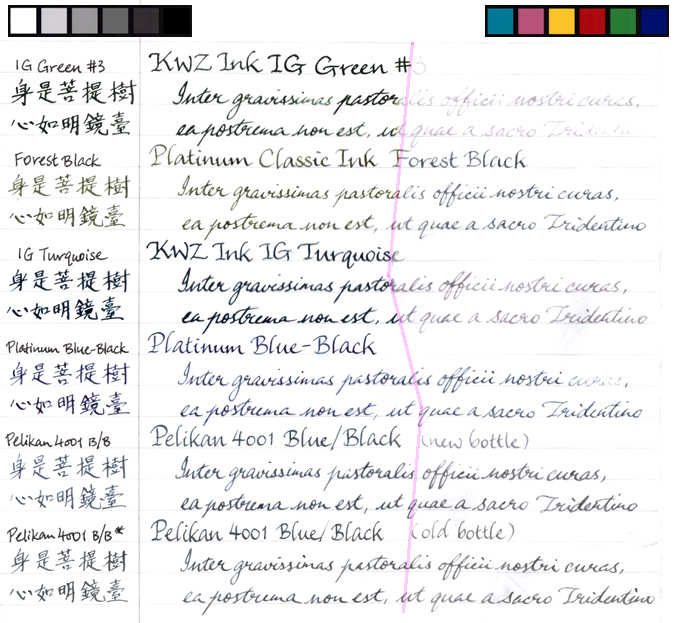 IG Green #3 KWZ Ink IG Green #3
身是菩提樹 Inter gravissimas pastoralis officii nostri curas,
心如明鏡臺 ea postrema non est, ut quae a sacro Tridentino
Forest Black Platinum Classic Ink Forest Black
身是菩提樹 Inter gravissimas pastoralis officii nostri curas,
心如明鏡臺 ea postrema non est, ut quae a sacro Tridentino
IG Turquoise KWZ Ink IG Turquoise
身是菩提樹 Inter gravissimas pastoralis officii nostri curas,
心如明鏡臺 ea postrema non est, ut quae a sacro Tridentino
Platinum Blue-Black Platinum Blue-Black
身是菩提樹 Inter gravissimas pastoralis officii nostri curas,
心如明鏡臺 ea postrema non est, ut quae a sacro Tridentino
Pelikan 4001 B/B Pelikan 4001 Blue/Black (new bottle)
身是菩提樹 Inter gravissimas pastoralis officii nostri curas,
心如明鏡臺 ea postrema non est, ut quae a sacro Tridentino
Pelikan 4001 B/B* Pelikan 4001 Blue/Black (old bottle)
身是菩提樹 Inter gravissimas pastoralis officii nostri curas,
心如明鏡臺 ea postrema non est, ut quae a sacro Tridentino